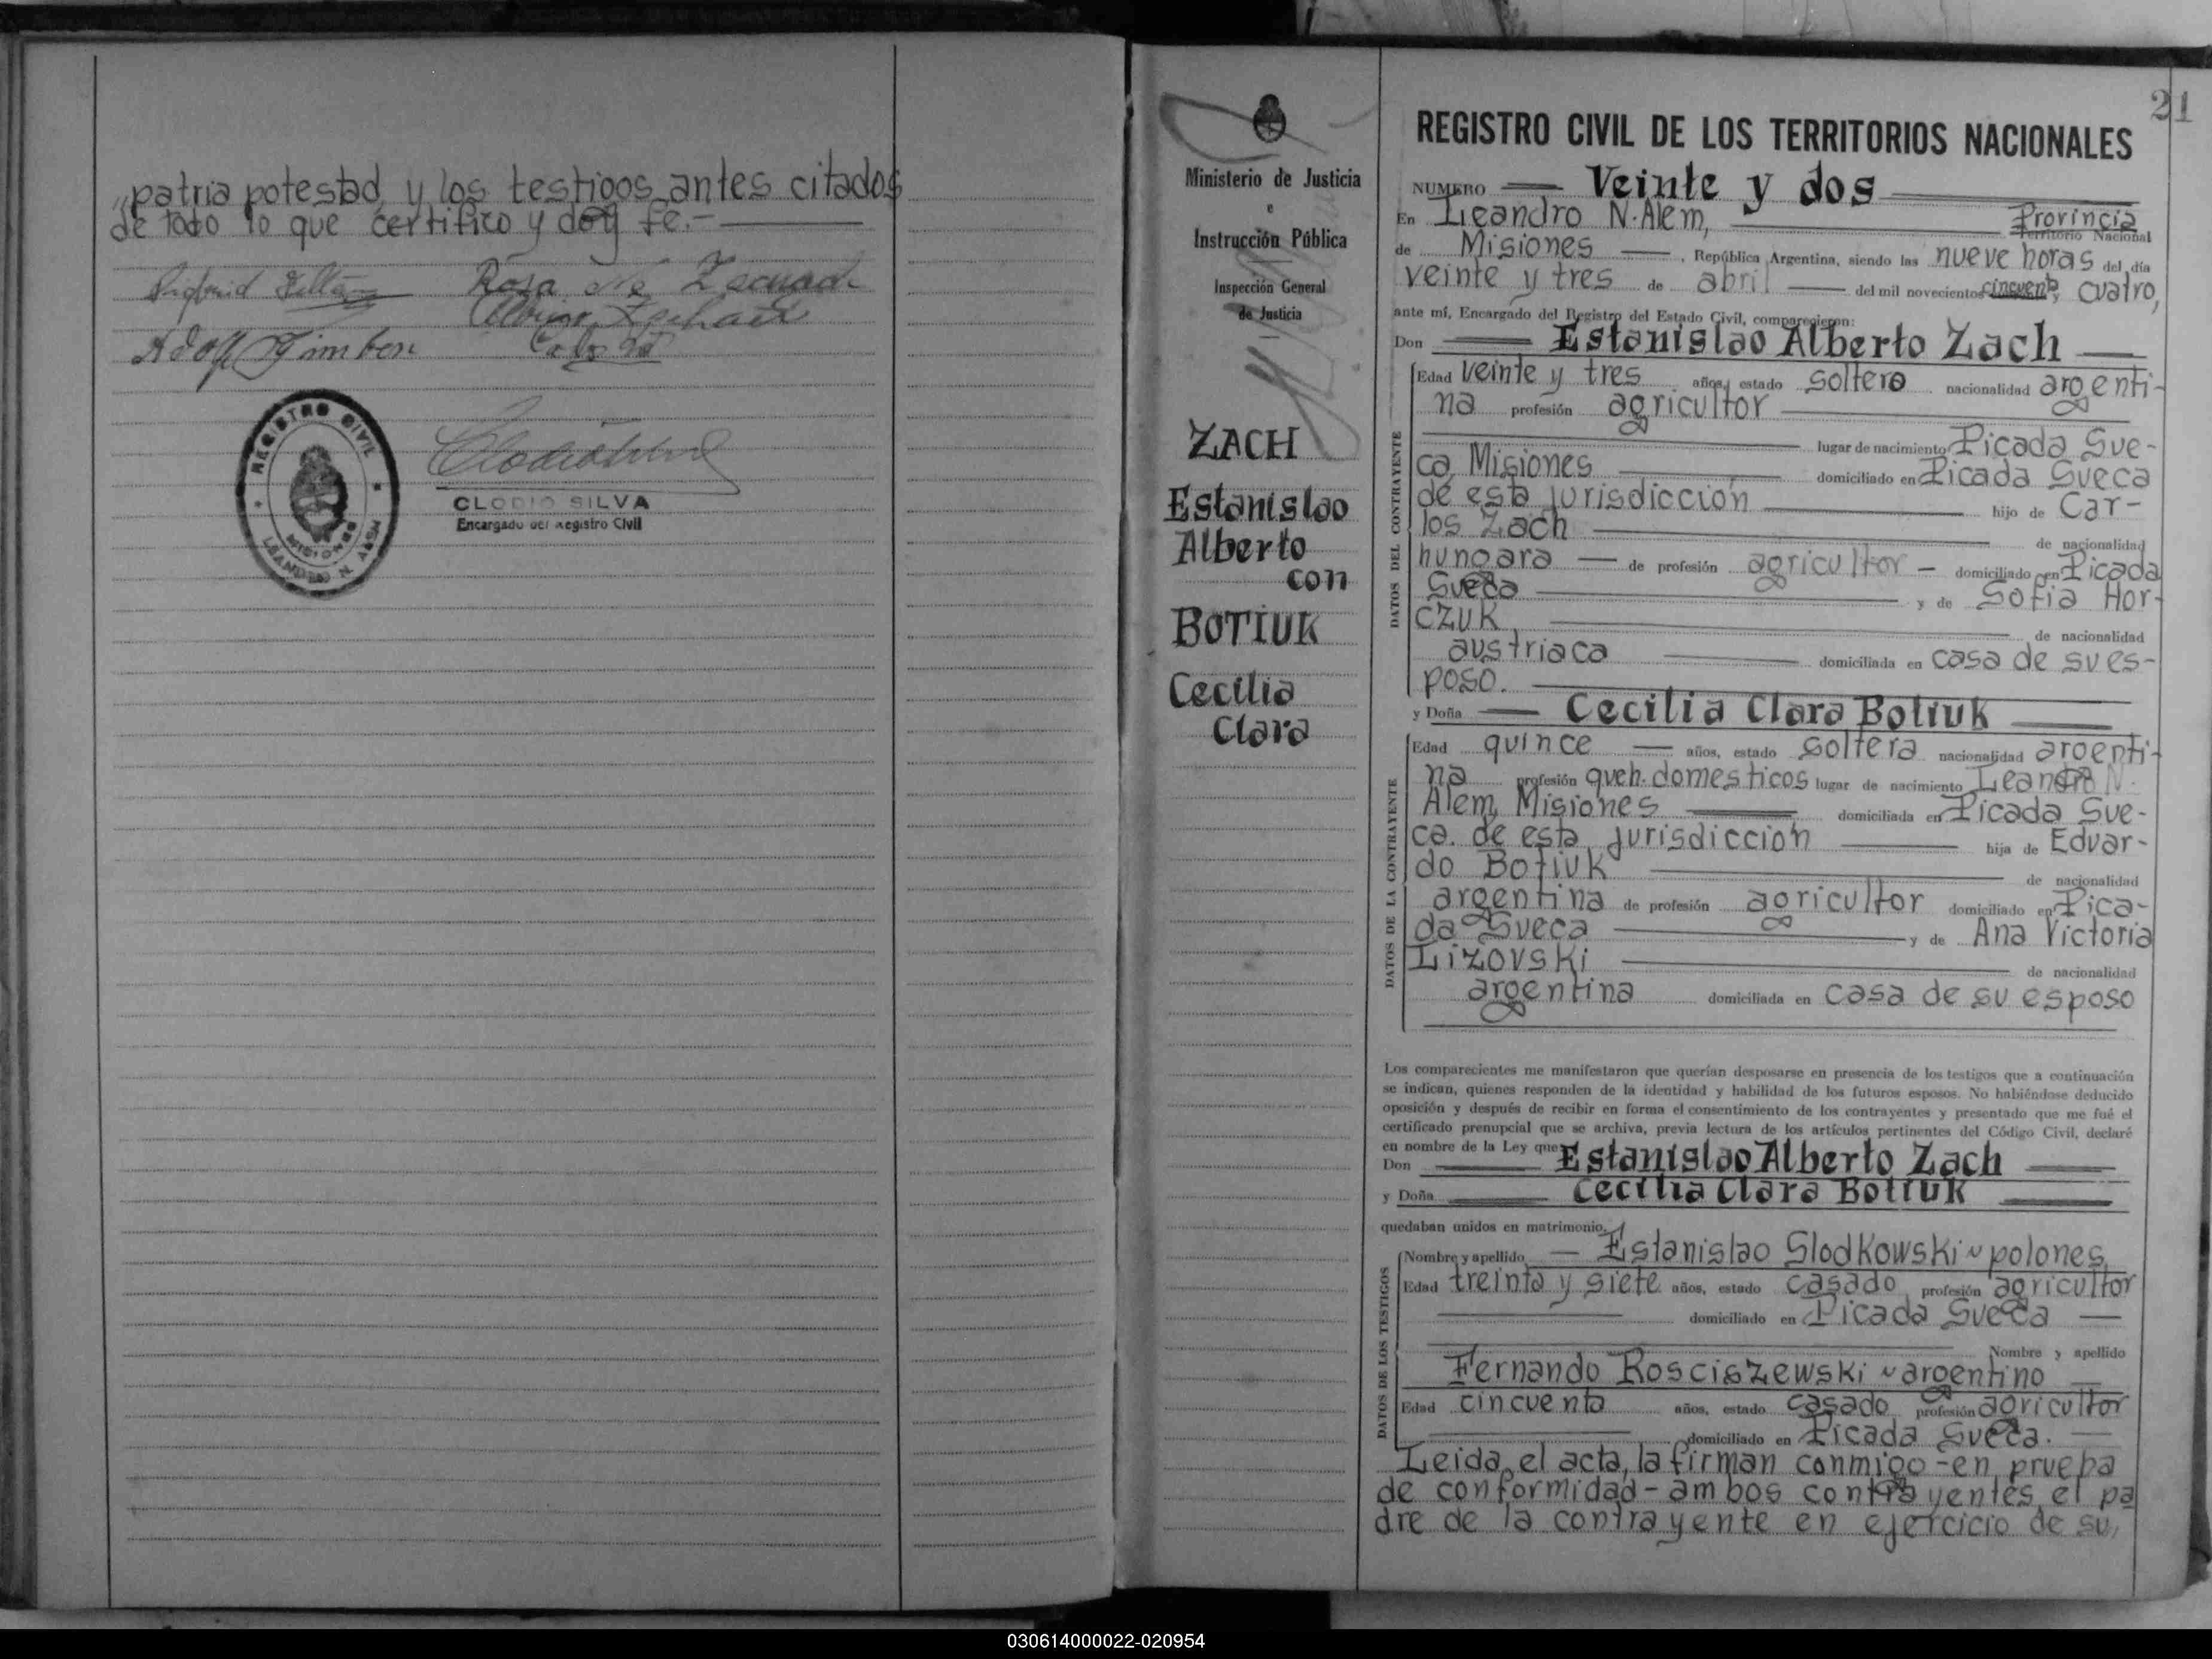 patria potestad, y los testigos antes citados
de todo lo que certifico y doy fe.-
Adolf
REGISTRO CIVIL
MISIONES
LEANDRO N. ALEM
CLODIO SILVA
Encargado del Registro Civil
21
Ministerio de Justicia
e
Instrucción Pública
Inspección General
de Justicia
ZACH
Estanislao
Alberto
con
BOTIUK
Cecilia
Clara
REGISTRO CIVIL DE LOS TERRITORIOS NACIONALES
NUMERO Veinte y dos
En Leandro N. Alem, Provincia
Territorio Nacional
de Misiones, República Argentina, siendo las nueve horas del día
veinte y tres de abril del mil novecientos cincuenta y cuatro,
ante mí, Encargado del Registro del Estado Civil, comparecieron:
Don Estanislao Alberto Zach
DATOS DEL CONTRAYENTE
Edad veinte y tres años, estado soltero nacionalidad argenti-
na profesión agricultor
lugar de nacimiento Picada Sue-
ca, Misiones domiciliado en Picada Sueca
de esta jurisdicción hijo de Car-
los Zach de nacionalidad
hungara de profesión agricultor - domiciliado en Picada
Sueca y de Sofia Hor-
czuk de nacionalidad
austriaca domiciliada en casa de su es-
poso.
y Doña Cecilia Clara Botiuk
DATOS DE LA CONTRAYENTE
Edad quince años, estado soltera nacionalidad argenti-
na profesión queh. domesticos lugar de nacimiento Leandro N.
Alem, Misiones domiciliada en Picada Sue-
ca. de esta jurisdicción hija de Eduar-
do Botiuk de nacionalidad
argentina de profesión agricultor domiciliado en Pica-
da Sueca y de Ana Victoria
Lizovski de nacionalidad
argentina domiciliada en casa de su esposo
Los comparecientes me manifestaron que querían desposarse en presencia de los testigos que a continuación
se indican, quienes responden de la identidad y habilidad de los futuros esposos. No habiéndose deducido
oposición y después de recibir en forma el consentimiento de los contrayentes y presentado que me fué el
certificado prenupcial que se archiva, previa lectura de los artículos pertinentes del Código Civil, declaré
en nombre de la Ley que
Don Estanislao Alberto Zach
y Doña Cecilia Clara Botiuk
quedaban unidos en matrimonio.
DATOS DE LOS TESTIGOS
Nombre y apellido - Estanislao Slodkowski ~ polones,
Edad treinta y siete años, estado casado, profesión agricultor
domiciliado en Picada Sueca
Nombre y apellido
Fernando Rosciszewski ~ argentino
Edad cincuenta años, estado casado profesión agricultor
domiciliado en Picada Sueca.
Leida, el acta, la firman conmigo -en prueba
de conformidad- ambos contrayentes, el pa
dre de la contrayente en ejercicio de su,
030614000022-020954